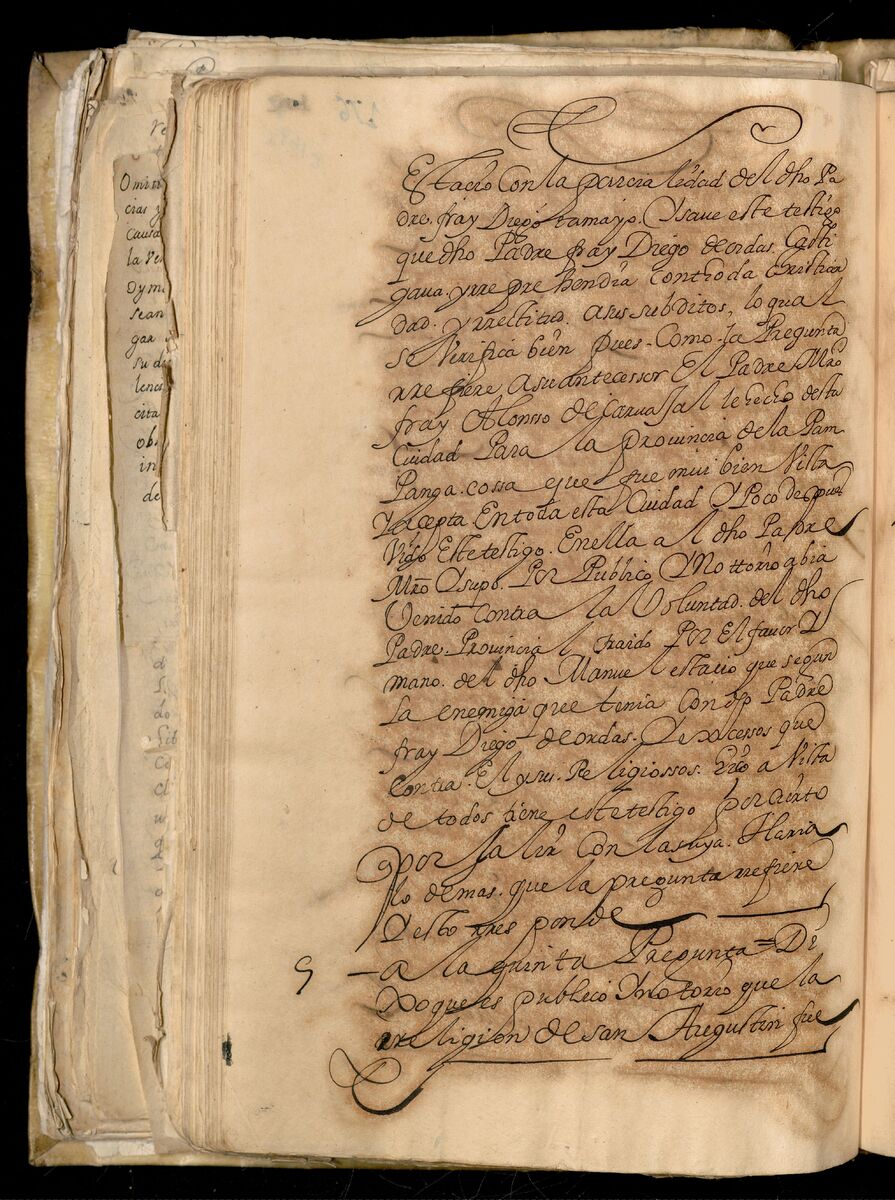 Estacio Con la parcialidad del dho Pa
dre. fray Diego tamayo. Y save este testigo
que dho Padre fray Diego de ordas. Casti
gava. y rreprehendia con toda cristian
dad. y rrectitud. a sus subditos, lo qual
se Verifica bien pues. Como la Pregunta
rrefiere a su antecessor El Padre Mro
fray Alonsso de Caruajal le hecho desta
Ciudad Para la Provincia de la Pam
Panga. cossa que fue mui bien Vista
Y acepta En toda esta Ciudad Y Poco despues
Vido Este testigo. En ella a el dho Padre
Mro Y supo. Por Publico Y Nottorio abia
Venido Contra la Voluntad. del dho
Padre. Provincial traido Por El favor Y
mano. del dho Manuel estacio que segun
La enemiga que tenia Con dho Padre
fray Diego de ordas. Y excessos que
Contra. El y sus Religiossos. hizo a Vista
de todos tiene este testigo por cierto
por salir con la suya. Haria
lo demas. que la pregunta rrefiere
Y esto rresponde
5 — a la quinta Pregunta = Di
xo que es publico Y notorio que la
rreligion de san Augustin fue
Omi
cias y
Causa
la Ve
Dymi
sean
gar
su d
lenc
cita
ob
in
de